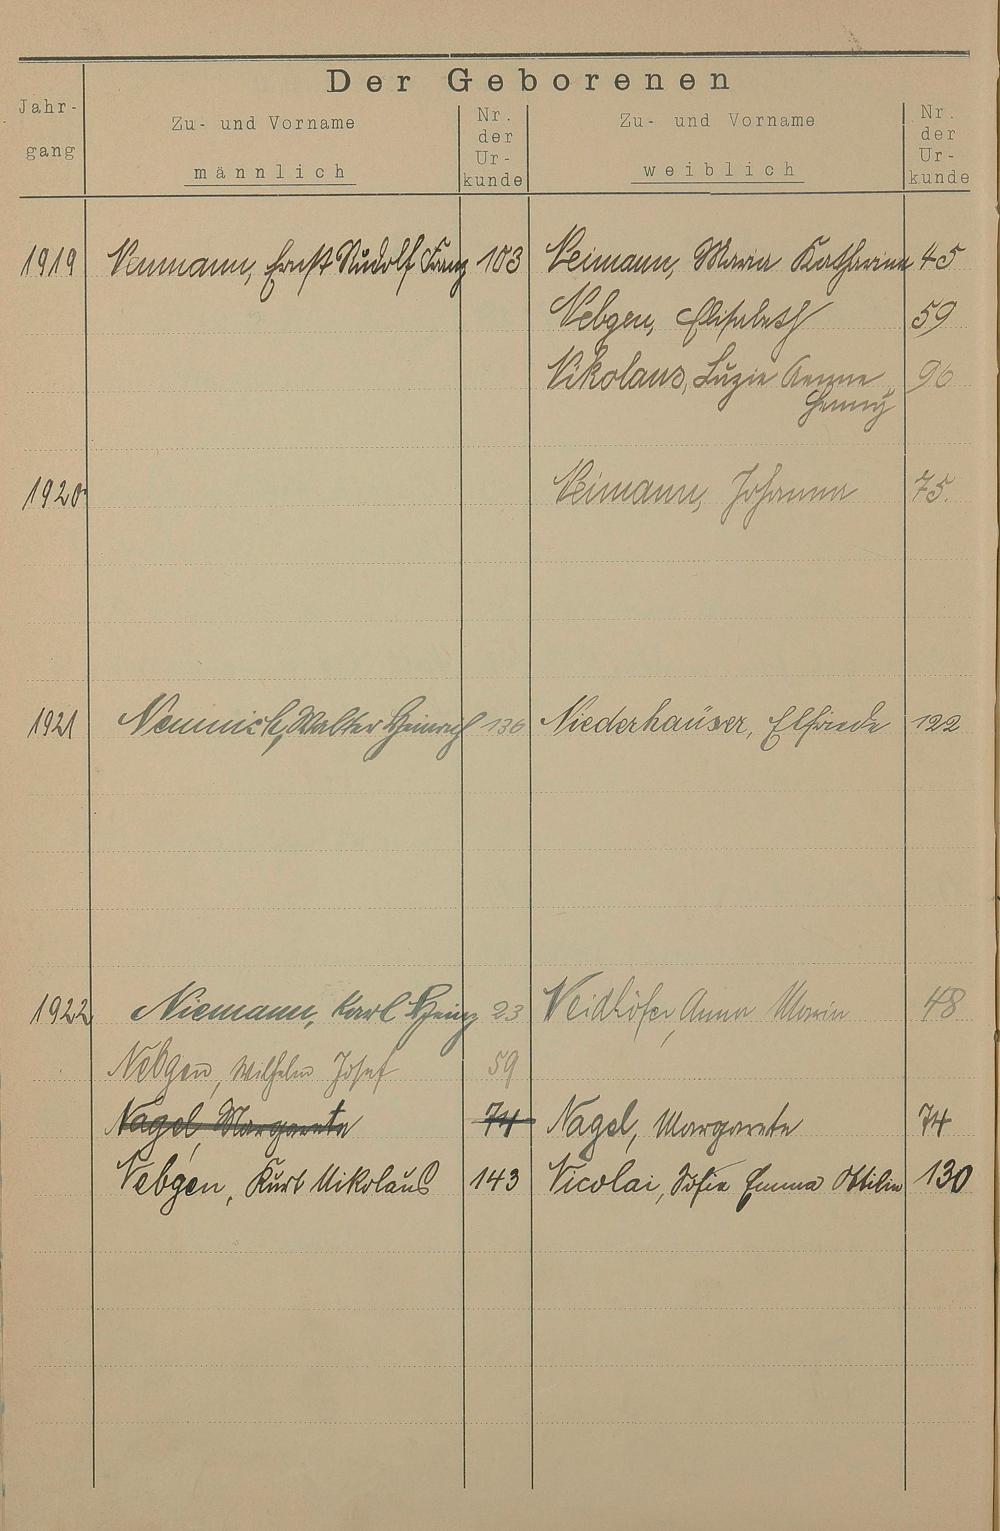 Der Geborenen
Jahr-
gang
Zu- und Vorname
männlich
Nr.
der
Ur-
kunde
Zu- und Vorname
weiblich
Nr.
der
Ur-
kunde
1919 Neumann, Ernst Rudolf Franz 103 Neimann, Maria Katharina 45
Nebgen, Elisabeth 59
Nikolaus, Luzie Aenne 96
Henny
1920 Neimann, Johanna 75.
1921 Nemnich, Walter Heinrich 136 Niederhaüser, Elfriede 122
1922 Niemann, Karl Heinz 23 Neidhöfer, Anna Maria 48
Nebgen, Wilhelm Josef 59
Nagel, Margarete 74 Nagel, Margarete 74
Nebgen, Kurt Nikolaus 143 Nicolai, Sofia Emma Ottilie 130